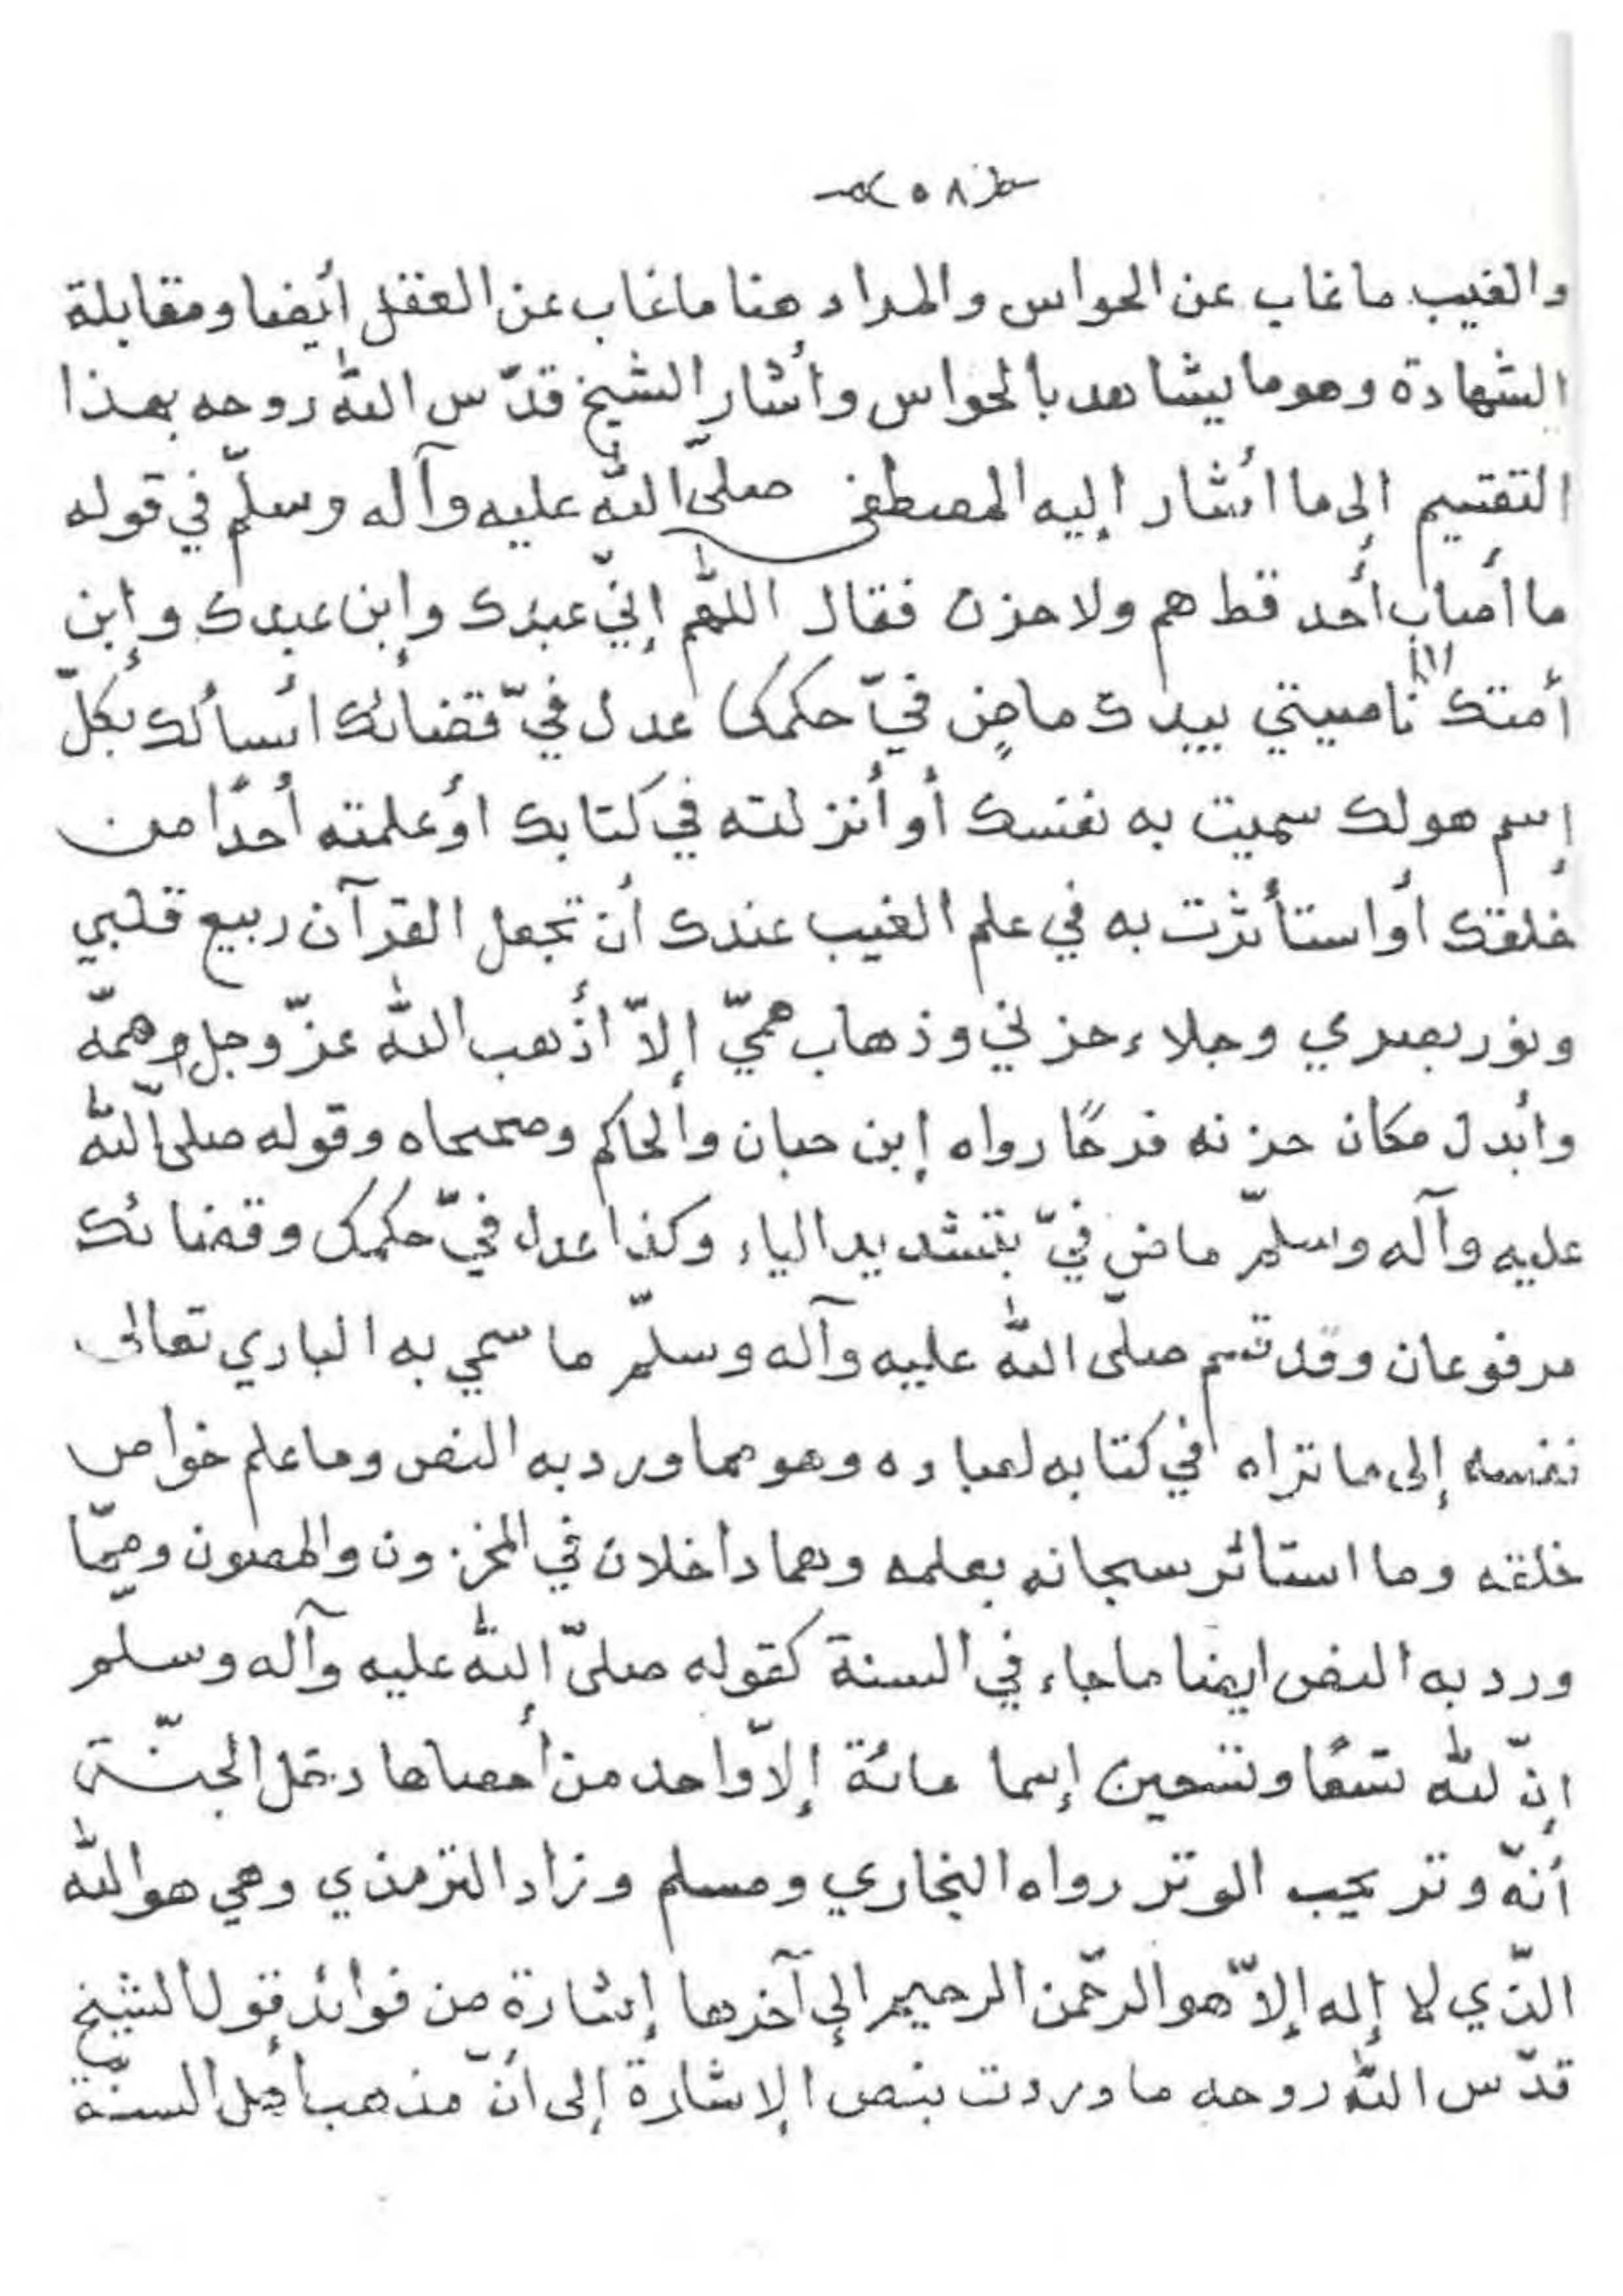 ٥٨
والغيب ما غاب عن الحواس والمراد هنا ما غاب عن العقل أيضا ومقابلة
الشهادة وهو ما يشاهد بالحواس وأشار الشيخ قدّس الله روحه بهذا
التقسيم إلى ما أشار إليه المصطفى صلّى الله عليه وآله وسلّم في قوله
ما أصاب أحد قط هم ولا حزن فقال اللهّم إنّي عبدك وإبن عبدك وإبن
أمتك ناصيتي بيدك ماضٍ فيّ حكمك عدل فيّ قضائك أسألك بكلّ
إسم هولك سميت به نفسك أو أنزلته في كتابك أو علمته أحدًا من
خلقك أو استأثرت به في علم الغيب عندك أن تجعل القرآن ربيع قلبي
ونور بصري وجلاء حزني وذهاب همّي إلاّ أذهب الله عزّ وجل همّه
وأبدل مكان حزنه فرحًا رواه إبن حبان والحاكم وصححاه وقوله صلى الله
عليه وآله وسلّم ماض فيّ بتشديد الياء وكذا عدل فيّ حكمك وقضائك
مرفوعان وقد قسم صلّى الله عليه وآله وسلّم ما سمي به الباري تعالى
نفسه إلى ما تراه في كتابه لعباده وهو مما ورد به النص وما علم خواص
خلقه وما استاثر سبحانه بعلمه وهما داخلان في المخزون والمصون وممّا
ورد به النص ايضا ما جاء في السنة كقوله صلّى الله عليه وآله وسلّم
إنّ لله تسعًا وتسعين إسما مائة إلاّ واحد من أحصاها دخل الجنّة
أنّه وتر يحب الوتر رواه البخاري ومسلم وزاد الترمذي وهي هو الله
الذّي لا إله إلاّ هو الرحّمن الرحيم إلى آخرها إشارة من فوائد قول الشيخ
قدّس الله روحه ما وردت بنص الإشارة إلى أنّ مذهب أهل السنّة